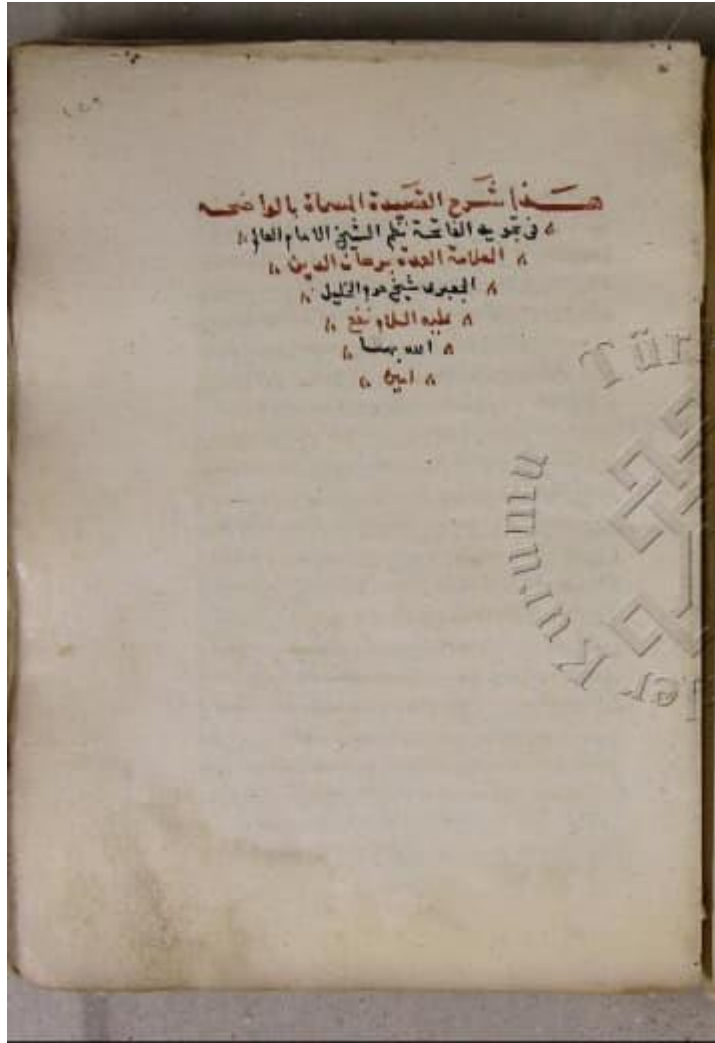 هذا شرح القصيدة المسماة بالواضحه
في تجويد الفاتحة نظم الشيخ الامام العالم
العلامة العمدة برهان الدين
الجعبرى شيخ حرم الخليل
عليه السلام نفع
الله بهما
امين